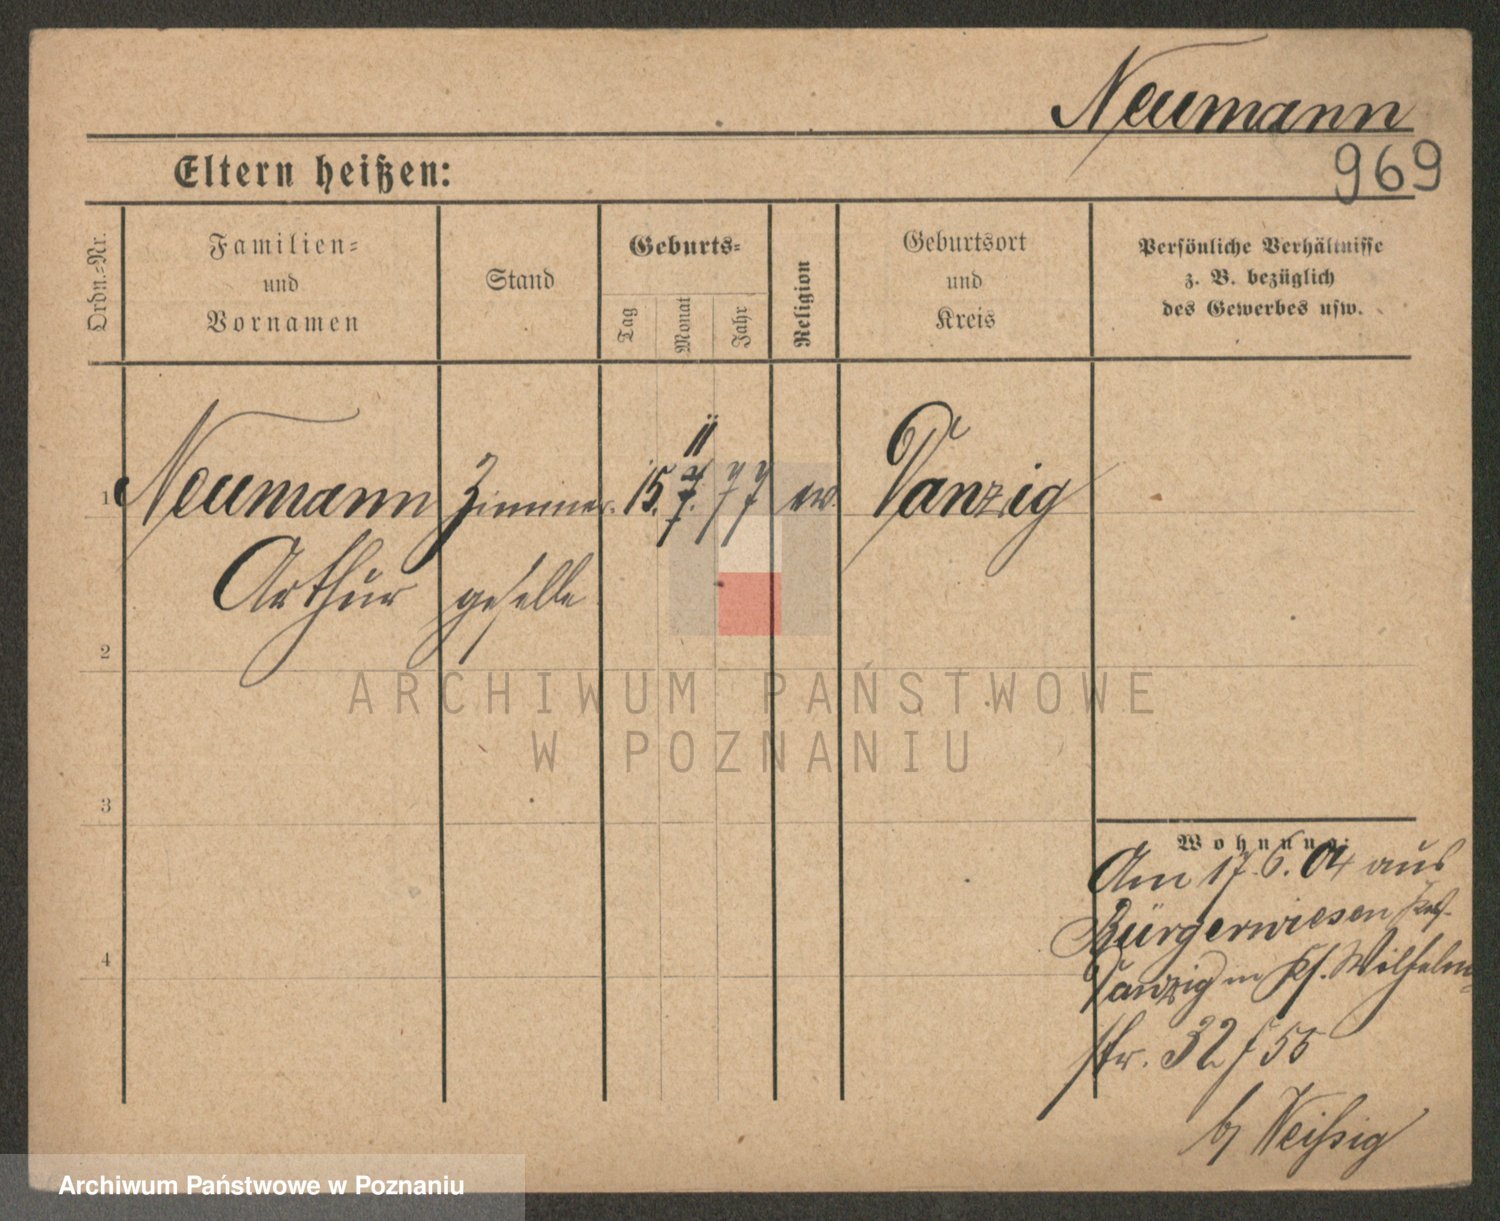 Neumann
969
Eltern heißen:
Ordn.-Nr.
Familien-
und
Vornamen
Stand
Geburts-
Tag
Monat
Jahr
Religion
Geburtsort
und
Kreis
Persönliche Verhältnisse
z. B. bezüglich
des Gewerbes usw.
11
1 Neumann Zimmer. 15. 7. 77 ev. Danzig
Arthur geselle
2
3
4
Wohnung:
Am 17.6.04 aus
Bürgerwiesen
Danzig n Kf. Wilhelm-
str. 32 f 55
b/ Weißig
ARCHIWUM PAŃSTWOWE
W POZNANIU
Archiwum Państwowe w Poznaniu